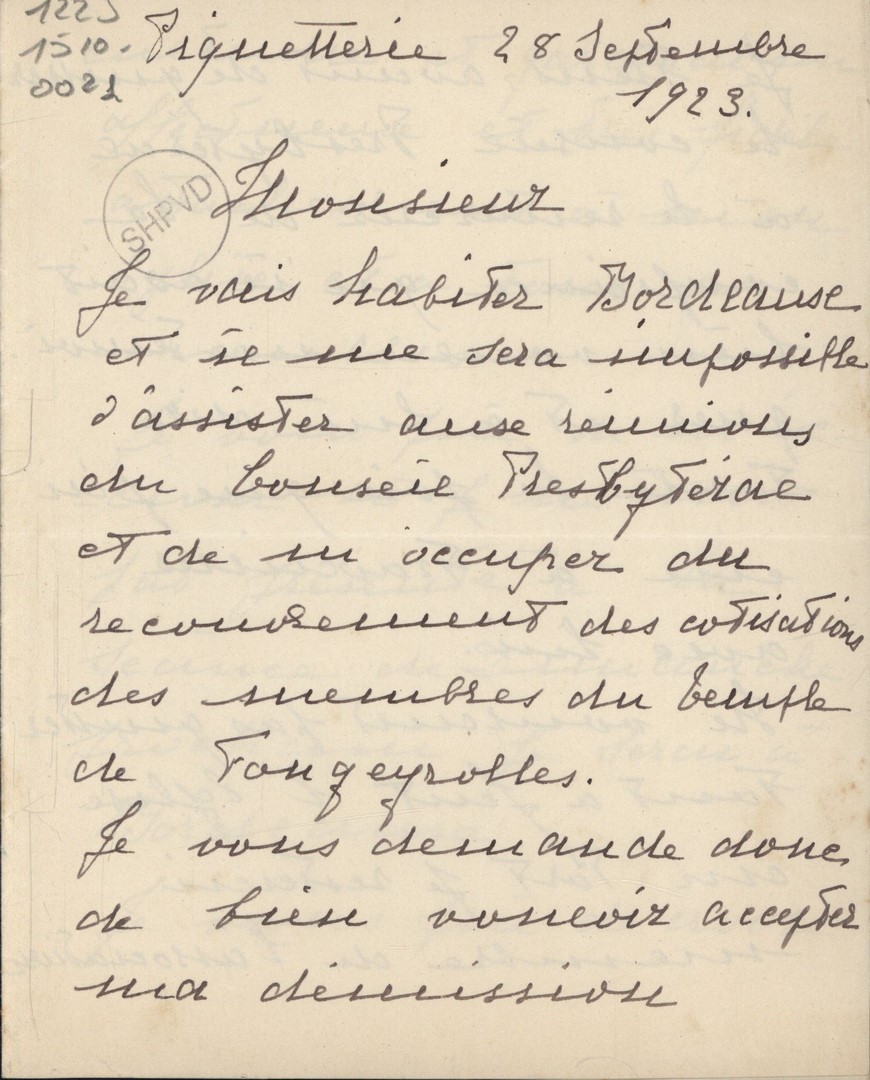 1223
1510.
0021
Piquetterie 28 Septembre
1923.
SHPVD
Monsieur
Je vais habiter Bordeaux
et il me sera impossible
d'assister aux réunions
du Conseil Presbytéral
et de m'occuper du
recouvrement des cotisations
des membres du temple
de Fougeyrolles.
Je vous demande donc
de bien vouloir accepter
ma démission